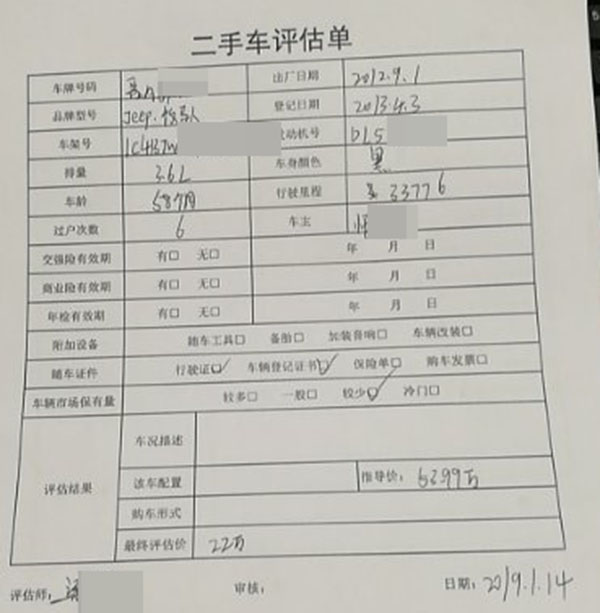 二手车评估单
车牌号码 出厂日期 2012.9.1
品牌型号 Jeep. 登记日期 2013.4.3
车架号 1C4HJW 发动机号 DL5
排量 3.6L 车身颜色 黑
车龄 58个月 行驶里程 33776
过户次数 6 车主
交强险有效期 有□ 无□ 年 月 日
商业险有效期 有□ 无□ 年 月 日
年检有效期 有□ 无□ 年 月 日
附加设备 随车工具□ 备胎□ 加装音响□ 车辆改装□
随车证件 行驶证☑ 车辆登记证书☑ 保险单□ 购车发票□
车辆市场保有量 较多□ 一般□ 较少☑ 冷门□
评估结果 车况描述
该车配置 指导价: 52.99万
购车形式
最终评估价 22万
评估师: 审核: 日期: 2019.1.14